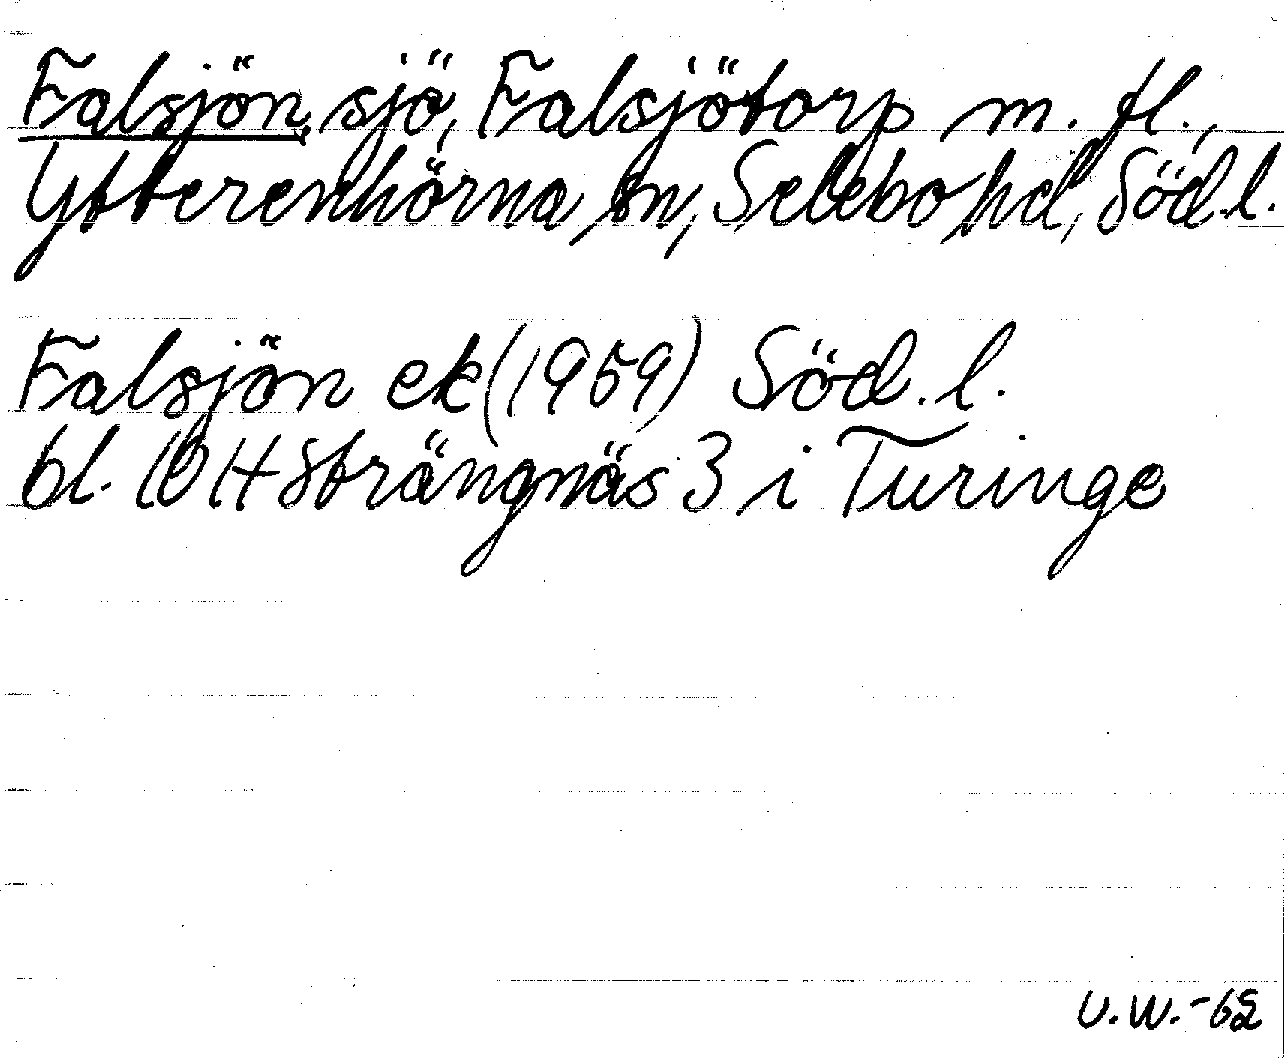 Falsjön, sjö, Falsjötorp m. fl.,
Ytterenhörna sn, Selebo hd, Söd. l.
Falsjön ek (1959) Söd. l.
bl. 10 H Strängnäs 3 i Turinge
U.W.-62